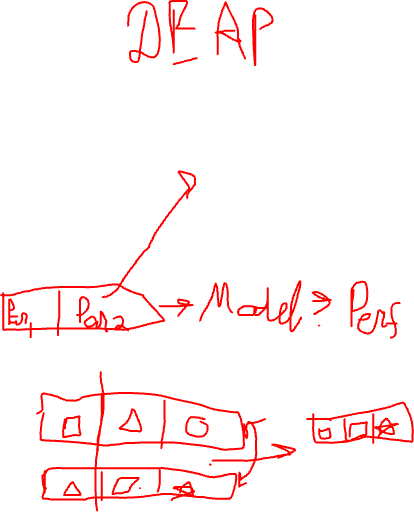 DEAP
Par1 Par2 → Model → Perf